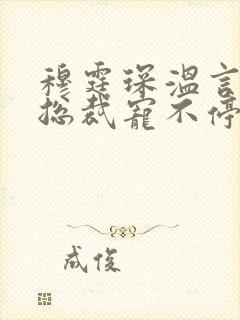 穆霆琛温言
总裁宠不停
成俊